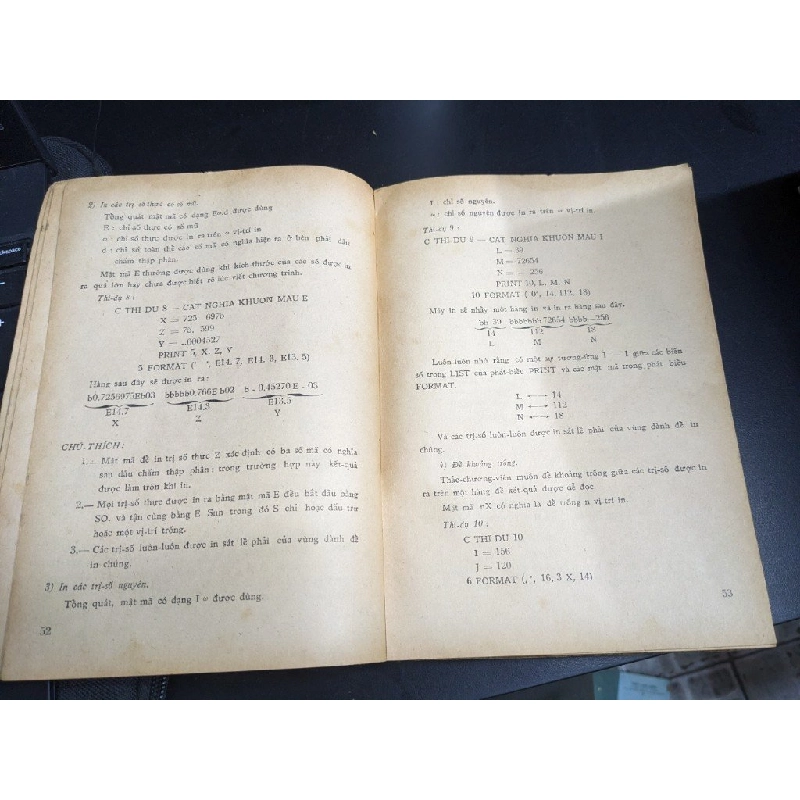 2) In các trị số thực có số mũ.
Tổng quát mật mã có dạng Ew.d được dùng
E : chỉ số thực có số mũ
w : chỉ số thực được in ra trên w vị-trí in
d : chỉ số toàn thể các số mã có nghĩa hiện ra ở bên phải dấu
chấm thập phân.
Mật mã E thường được dùng khi kích thước của các số được in
ra quá lớn hay chưa được hiểu rõ lúc viết chương trình.
Thí-dụ 8 :
C THI DU 8 — CAT NGHIA KHUON MAU E
X = 725 697
Z = 76. 599
Y = .0004527
PRINT 5, X, Z, Y
5 FORMAT ( E14. 7, E14. 3, E13. 5)
Hàng sau đây sẽ được in ra :
b0.7256977Eb03 bbbbb0.766Eb02 b - 0.45270E - 03
E14.7 E14.3 E13.5
X Z Y
CHÚ THÍCH :
1.— Mật mã để in trị số thực Z xác định có ba số mã có nghĩa
sau dấu chấm thập phân ; trong trường hợp này kết-quả
được làm tròn khi in.
2.— Mọi trị số thực được in ra bằng mật mã E đều bắt đầu bằng
SO. và tận cùng bằng E Snn trong đó S chỉ hoặc dấu trừ
hoặc một vị-trí trống.
3.— Các trị-số luôn-luôn được in sát lề phải của vùng dành để
in chúng.
3) In các trị-số nguyên.
Tổng quát, mật mã có dạng I w được dùng.
52
I : chỉ số nguyên.
w : chỉ số nguyên được in ra trên w vị-trí in
Thí-dụ 9 :
C THI DU 9 — CAT NGHIA KHUON MAU I
L = 39
M = 72654
N = - 256
PRINT 10, L, M, N
10 FORMAT ( 0', I4, I12, I8)
Máy in sẽ nhảy một hàng in và in ra hàng sau đây.
bb 39 bbbbbbb 72654 bbbb - 256
I4 I12 I8
L M N
Luôn-luôn nhớ rằng có một sự tương-ứng 1 — 1 giữa các biến
số trong LIST của phát-biểu PRINT và các mật mã trong phát biểu
FORMAT.
L ⟷ I4
M ⟷ I12
N ⟷ I8
Và các trị-số luôn-luôn được in sát lề phải của vùng dành để in
chúng.
4) Để khoảng trống.
Thảo-chương-viên muốn để khoảng trống giữa các trị-số được in
ra trên một hàng để kết quả được dễ đọc
Mật mã nX có nghĩa là để trống n vị trí in.
Thí-dụ 10 :
C THI DU 10
I = 156
J = 120
6 FORMAT (, ', I6, 3 X, I4)
53